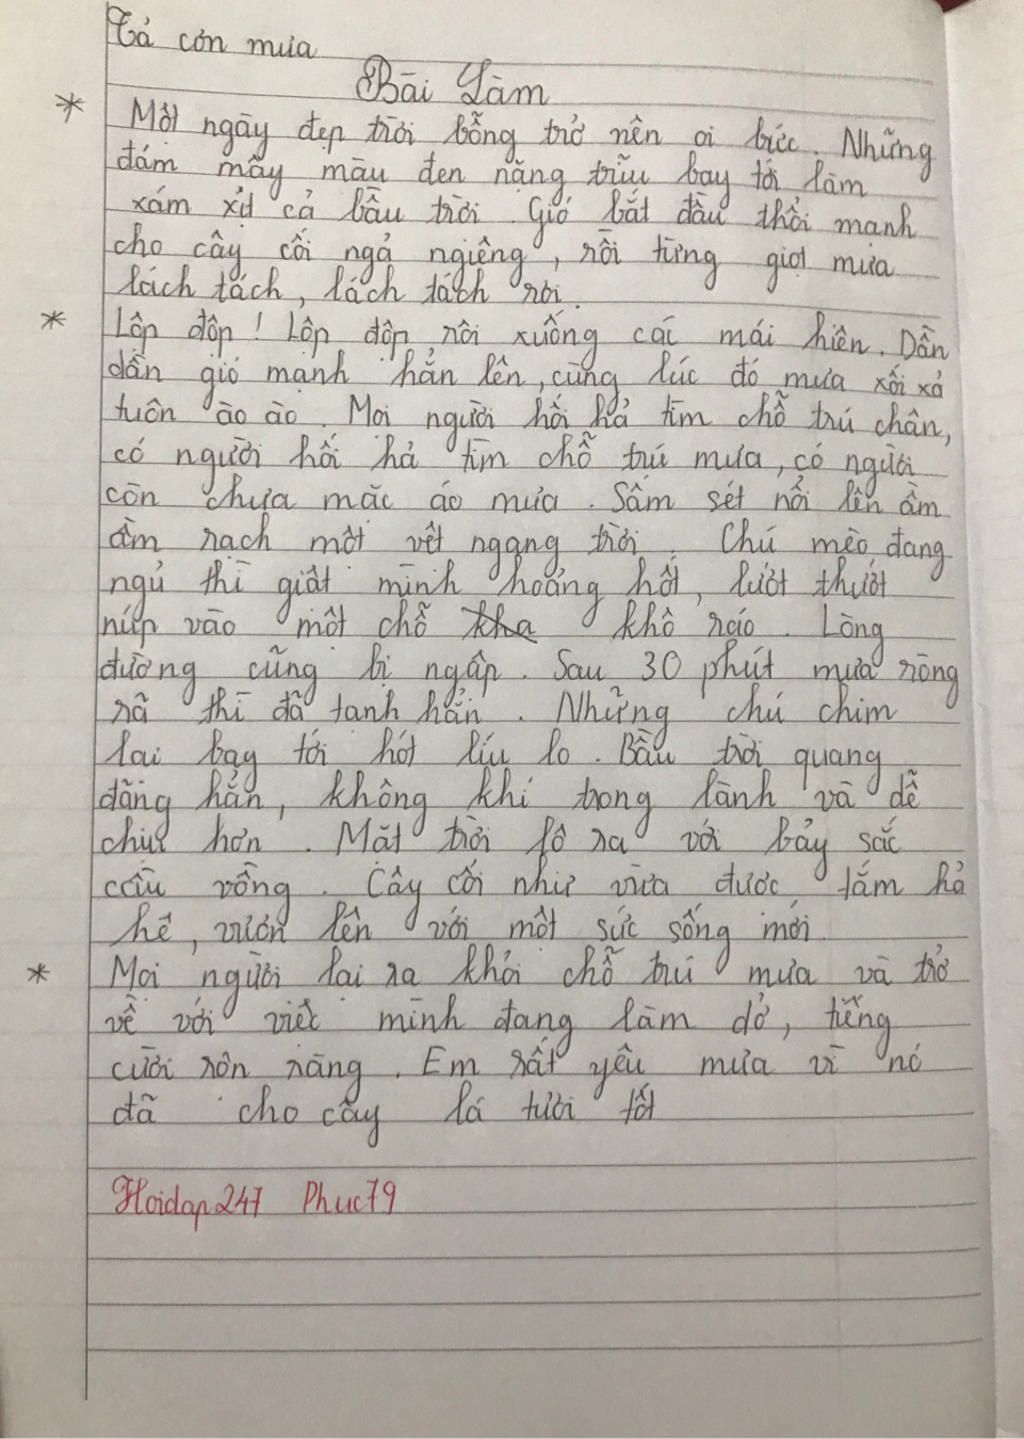 Tả cơn mưa
Bài Làm
* Một ngày đẹp trời bỗng trở nên oi bức. Những
đám mây màu đen nặng trĩu bay tới làm
xám xịt cả bầu trời. Gió bắt đầu thổi mạnh
cho cây cối ngả ngiêng, rồi từng giọt mưa
lách tách, lách tách rơi.
* Lộp độp! Lộp độp rơi xuống cái mái hiên. Dần
dần gió mạnh hẳn lên, cùng lúc đó mưa xối xả
tuôn ào ào. Mọi người hối hả tìm chỗ trú chân,
có người hối hả tìm chỗ trú mưa, có người
còn chưa mặc áo mưa. Sấm sét nổi lên ầm
ầm rạch một vệt ngang trời. Chú mèo đang
ngủ thì giật mình hoảng hốt, lướt thướt
núp vào một chỗ kha khô ráo. Lòng
đường cũng bị ngập. Sau 30 phút mưa ròng
rã thì đã tạnh hẳn. Những chú chim
lại bay tới hót líu lo. Bầu trời quang
đãng hẳn, không khí trong lành và dễ
chịu hơn. Mặt trời ló ra với bảy sắc
cầu vồng. Cây cối như vừa được tắm hả
hê, vươn lên với một sức sống mới
* Mọi người lại ra khỏi chỗ trú mưa và trở
về với việc mình đang làm dở, tiếng
cười rộn ràng. Em rất yêu mưa vì nó
đã cho cây lá tươi tốt
Hoidap247 Phuc79